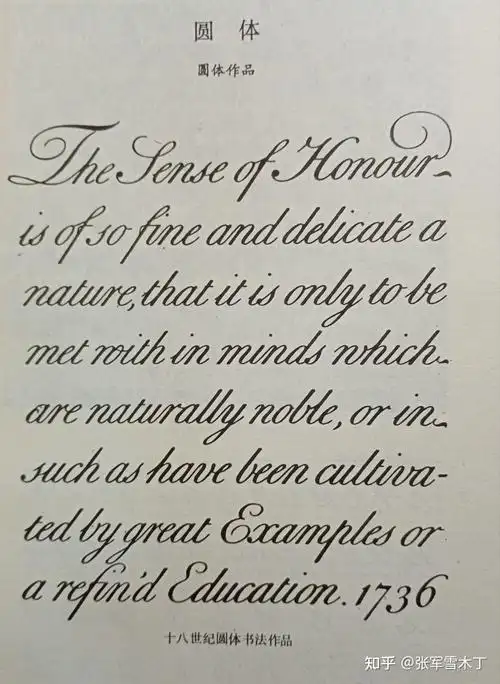 圆 体
圓体作品
The Sense of Honour
is of so fine and delicate a
nature, that it is only to be
met with in minds which
are naturally noble, or in
such as have been cultiva-
ted by great Examples or
a refin'd Education. 1736
十八世纪圓体书法作品
知乎 @张军雪木丁